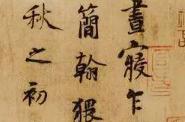 晝寢乍
簡翰猥
秋之初